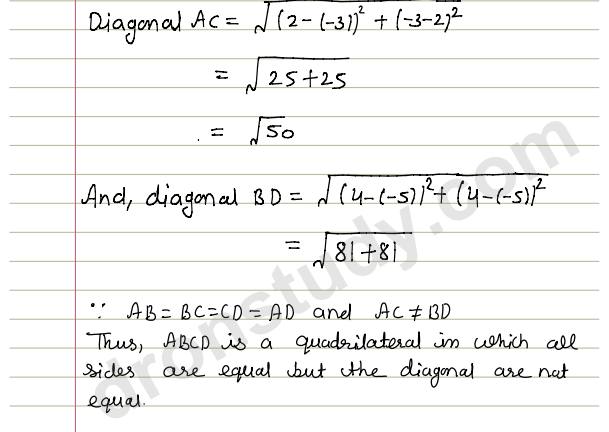 Diagonal AC = √(2-(-3))² + (-3-2)²
= √25+25
= √50
And, diagonal BD = √(4-(-5))² + (4-(-5))²
= √81+81
∵ AB = BC = CD = AD and AC ≠ BD
Thus, ABCD is a quadrilateral in which all
sides are equal but the diagonal are not
equal.
dronstudy.com